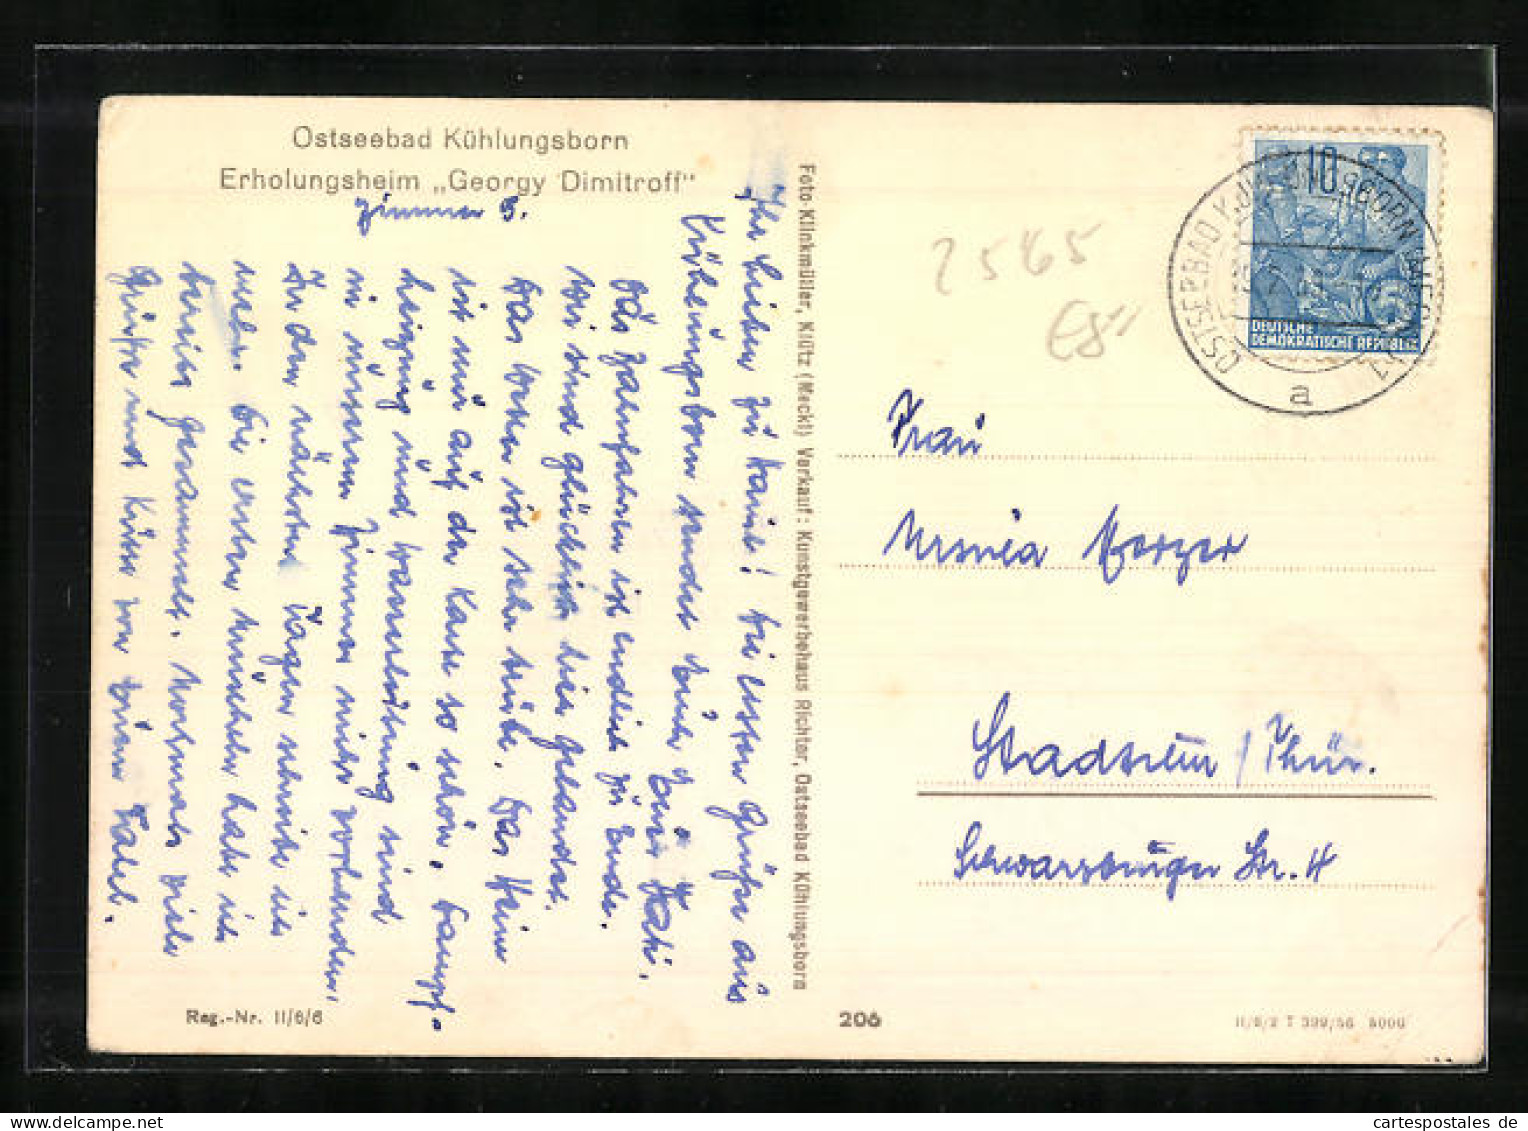 Ostseebad Kühlungsborn
Erholungsheim „Georgy Dimitroff"
Zimmer 5.
Ihr Lieben zu Haus! Die ersten Grüße aus
Kühlungsborn sendet Euch Euer Vati.
Das Bahnfahren ist endlich zu Ende.
Wir sind glücklich hier gelandet.
Das Wetter ist sehr trübe. Das Heim
ist nur auf der Karte so schön. Dampf-
heizung und Wasserleitung sind
in unserem Zimmer nicht vorhanden.
In den nächsten Tagen schreibe ich
mehr. Die ersten Muscheln habe ich
bereits gesammelt. Nochmals viele
Grüße und Küsse von Eurem Vatel.
Reg.-Nr. II/6/6
Foto-Klinkmüller, Klütz (Meckl) Verkauf: Kunstgewerbehaus Richter, Ostseebad Kühlungsborn
206
2565
10
DEUTSCHE
DEMOKRATISCHE REPUBLIK
OSTSEEBAD KÜHLUNGSBORN
a
Frau
Stadtilm / Thür.
Schwarzburger Str. 4
II/6/2 T 399/56 5000
cartespostales de